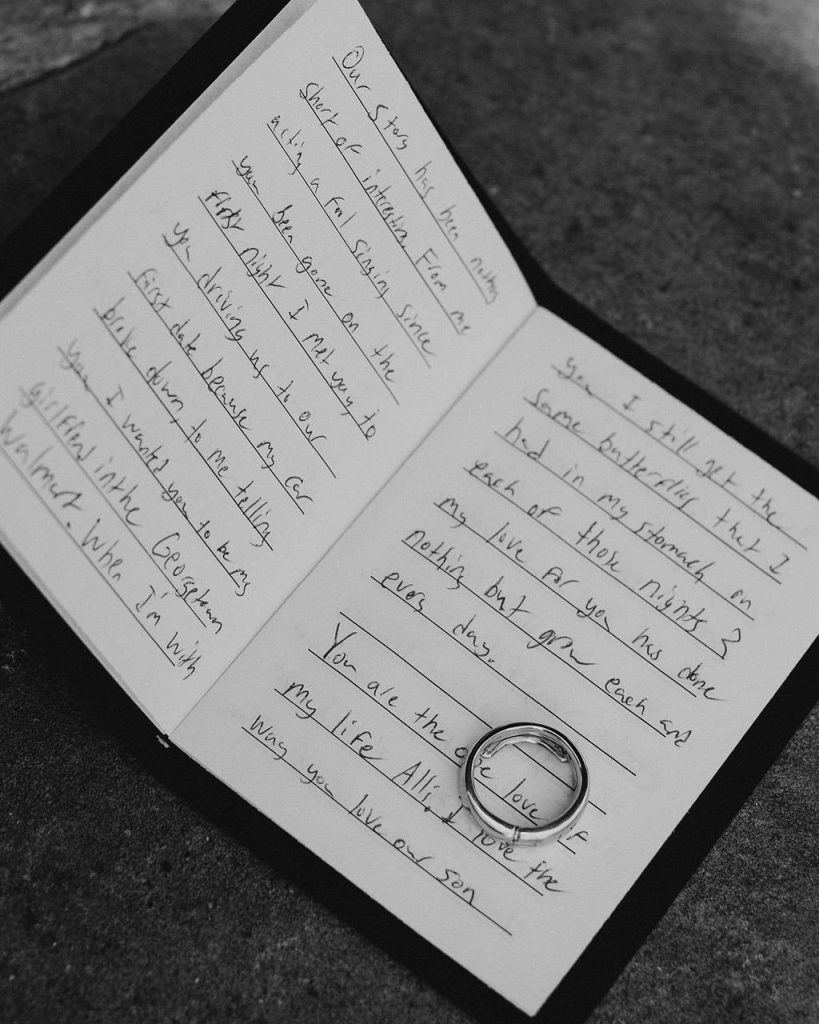 Our story has been nothing
short of interesting From me
acting a fool singing since
you been gone on the
first night I met you, to
you driving us to our
first date because my car
broke down, to me telling
you I wanted you to be my
girlfriend in the Georgetown
Walmart. When I'm with
you I still get the
same butterflies that I
had in my stomach on
each of those nights &
my love for you has done
nothing but grow each and
every day.
You are the one love of
my life Alli, I love the
way you love our son